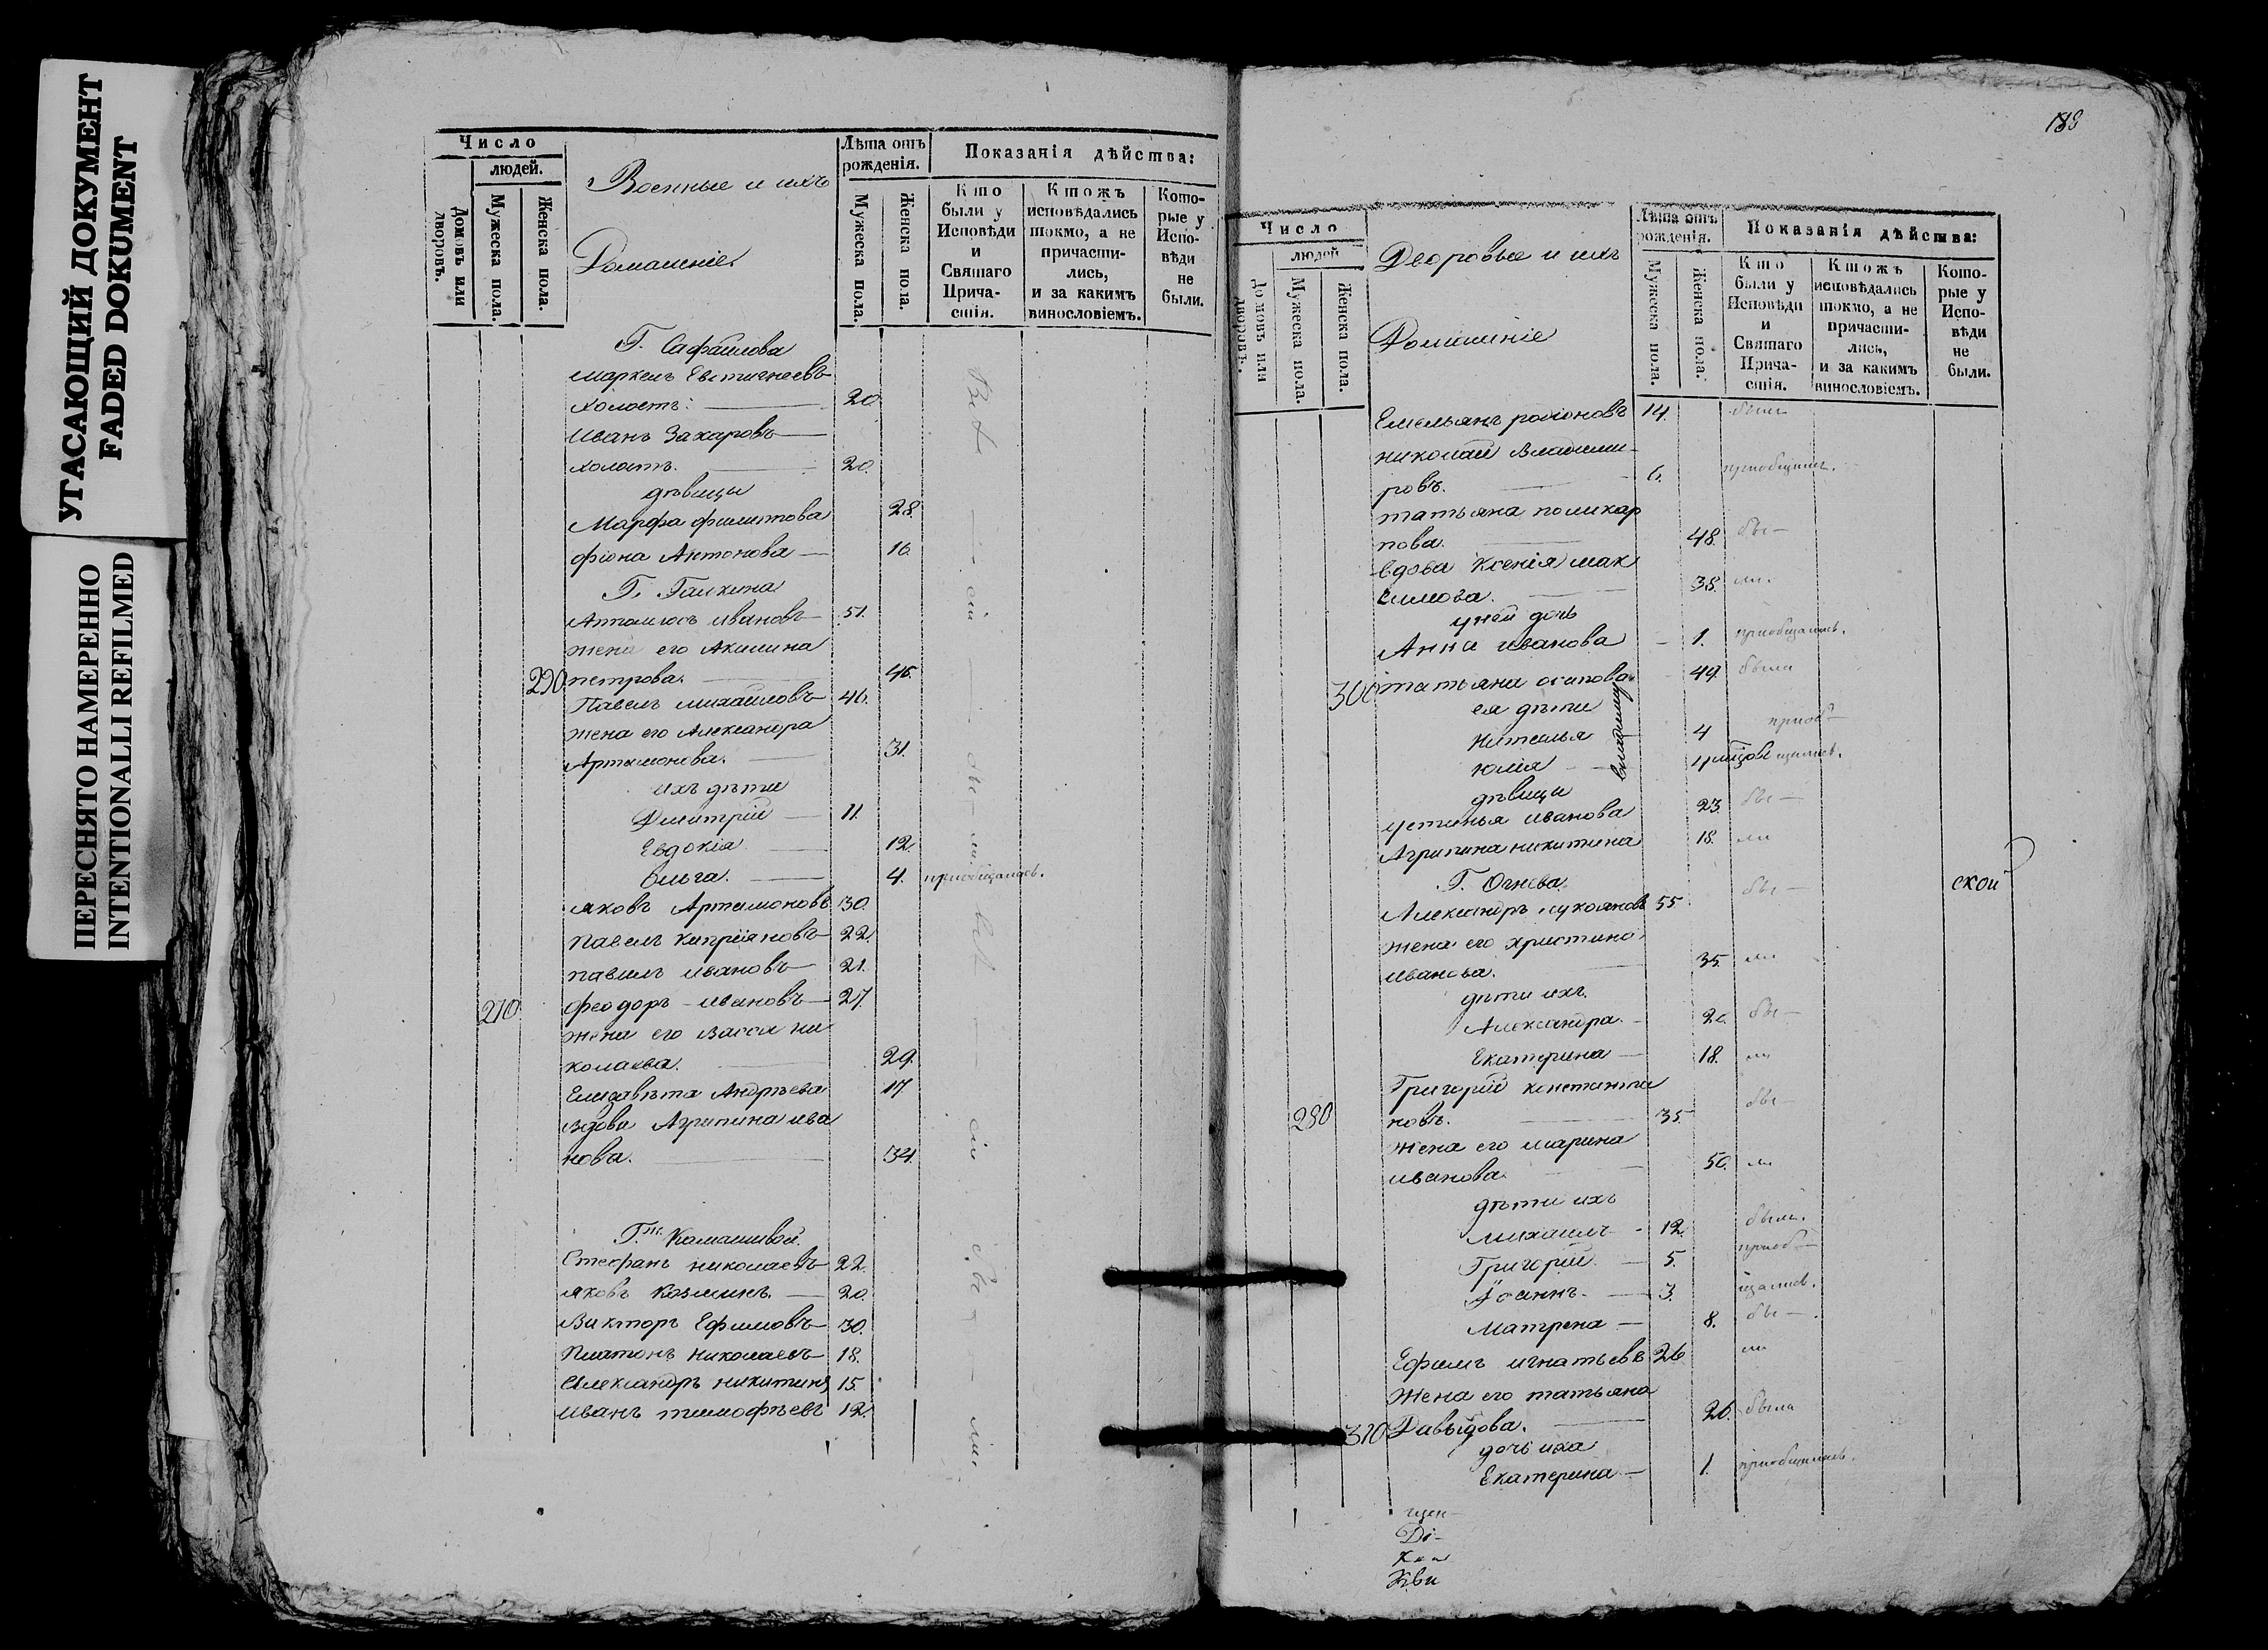 УГАСАЮЩИЙ ДОКУМЕНТ
FADED DOKUMENT
ПЕРЕСНЯТО НАМЕРЕННО
INTENTIONALLI REFILMED
Число
людей.
Домовъ или дворовъ.
Мужеска пола.
Женска пола.
Военные и ихъ
Домашніе
Лѣта отъ рожденія.
Мужеска пола.
Женска пола.
Показанія дѣйства:
Кто были у Исповѣди и Святаго Прича-стія.
Ктожъ исповѣдались токмо, а не причасти-лись, и за какимъ винословіемъ.
Кото-рые у Испо-вѣди не были.
Г. Сафаилова
Маркелъ Евстигнеевъ
холостъ. 20
Иванъ Захаровъ
холостъ. 20.
дѣвицы
Марфа филиппова 28.
фіона Антонова 16.
Г. Галкина
Ивановъ 51.
жена его Акилина
290 петрова. 46.
Павелъ Михайловъ 46.
жена его Александра
Артамонова. 31.
ихъ дѣти
Димитрій 11.
Евдокія 12
Ольга. 4. приобщалась.
Яковъ Артамоновъ 30.
Павелъ Кипріяновъ 22.
Павелъ Ивановъ 21.
270. феодоръ Ивановъ 27.
жена его Васса ни
колаева. 29.
Елисавѣта Андрѣева 17
вдова Агрипина ива
нова. 34.
Г.ж. Камашивой.
Стефанъ Николаевъ 22.
Яковъ Козминъ. 20.
Викторъ Ефимовъ 30.
Платонъ Николаевъ 18.
Александръ Никитинъ 15.
Иванъ тимофѣевъ 12.
Число
людей
Домовъ или дворовъ.
Мужеска пола.
Женска пола.
Дворовые и ихъ
Домашніе
Лѣта отъ рожденія.
Мужеска пола.
Женска пола.
Показанія дѣйства:
Кто были у Исповѣди и Святаго Прича-стія.
Ктожъ исповѣдались токмо, а не причасти-лись, и за какимъ винословіемъ.
Кото-рые у Испо-вѣди не были.
Емельянъ родіоновъ 14.
Николай Владими-
ровъ. 6.
татьяна поликар
пова. 48. бы-
вдова Ксенія мак
симова. 38. ли.
у ней дочь
Анна иванова 1. приобщалась.
300 татьяна осипова 49. была
ея дѣти
Наталья 4 приоб-
Юлія
дѣвицы
устинья иванова 23. бы-
Агрипина никитина 18. ли
Г. Огнева. ской
Александръ лукояновъ 55 бы-
жена его христина
иванова. 35. ли
дѣти ихъ.
Александра. 20. бы-
Екатерина 18. ли
Григорій константи
280 новъ. 35. бы-
жена его марина
иванова. 50. ли
дѣти ихъ
Михаилъ 12. былъ.
Григорій. 5. приоб-
Іоаннъ. 3. щались.
Матрена 8. бы-
Ефимъ игнатьевъ 26 ли
жена его татьяна
310 Давыдова. 26. была
дочь ихъ
Екатерина 1. приобщалась.